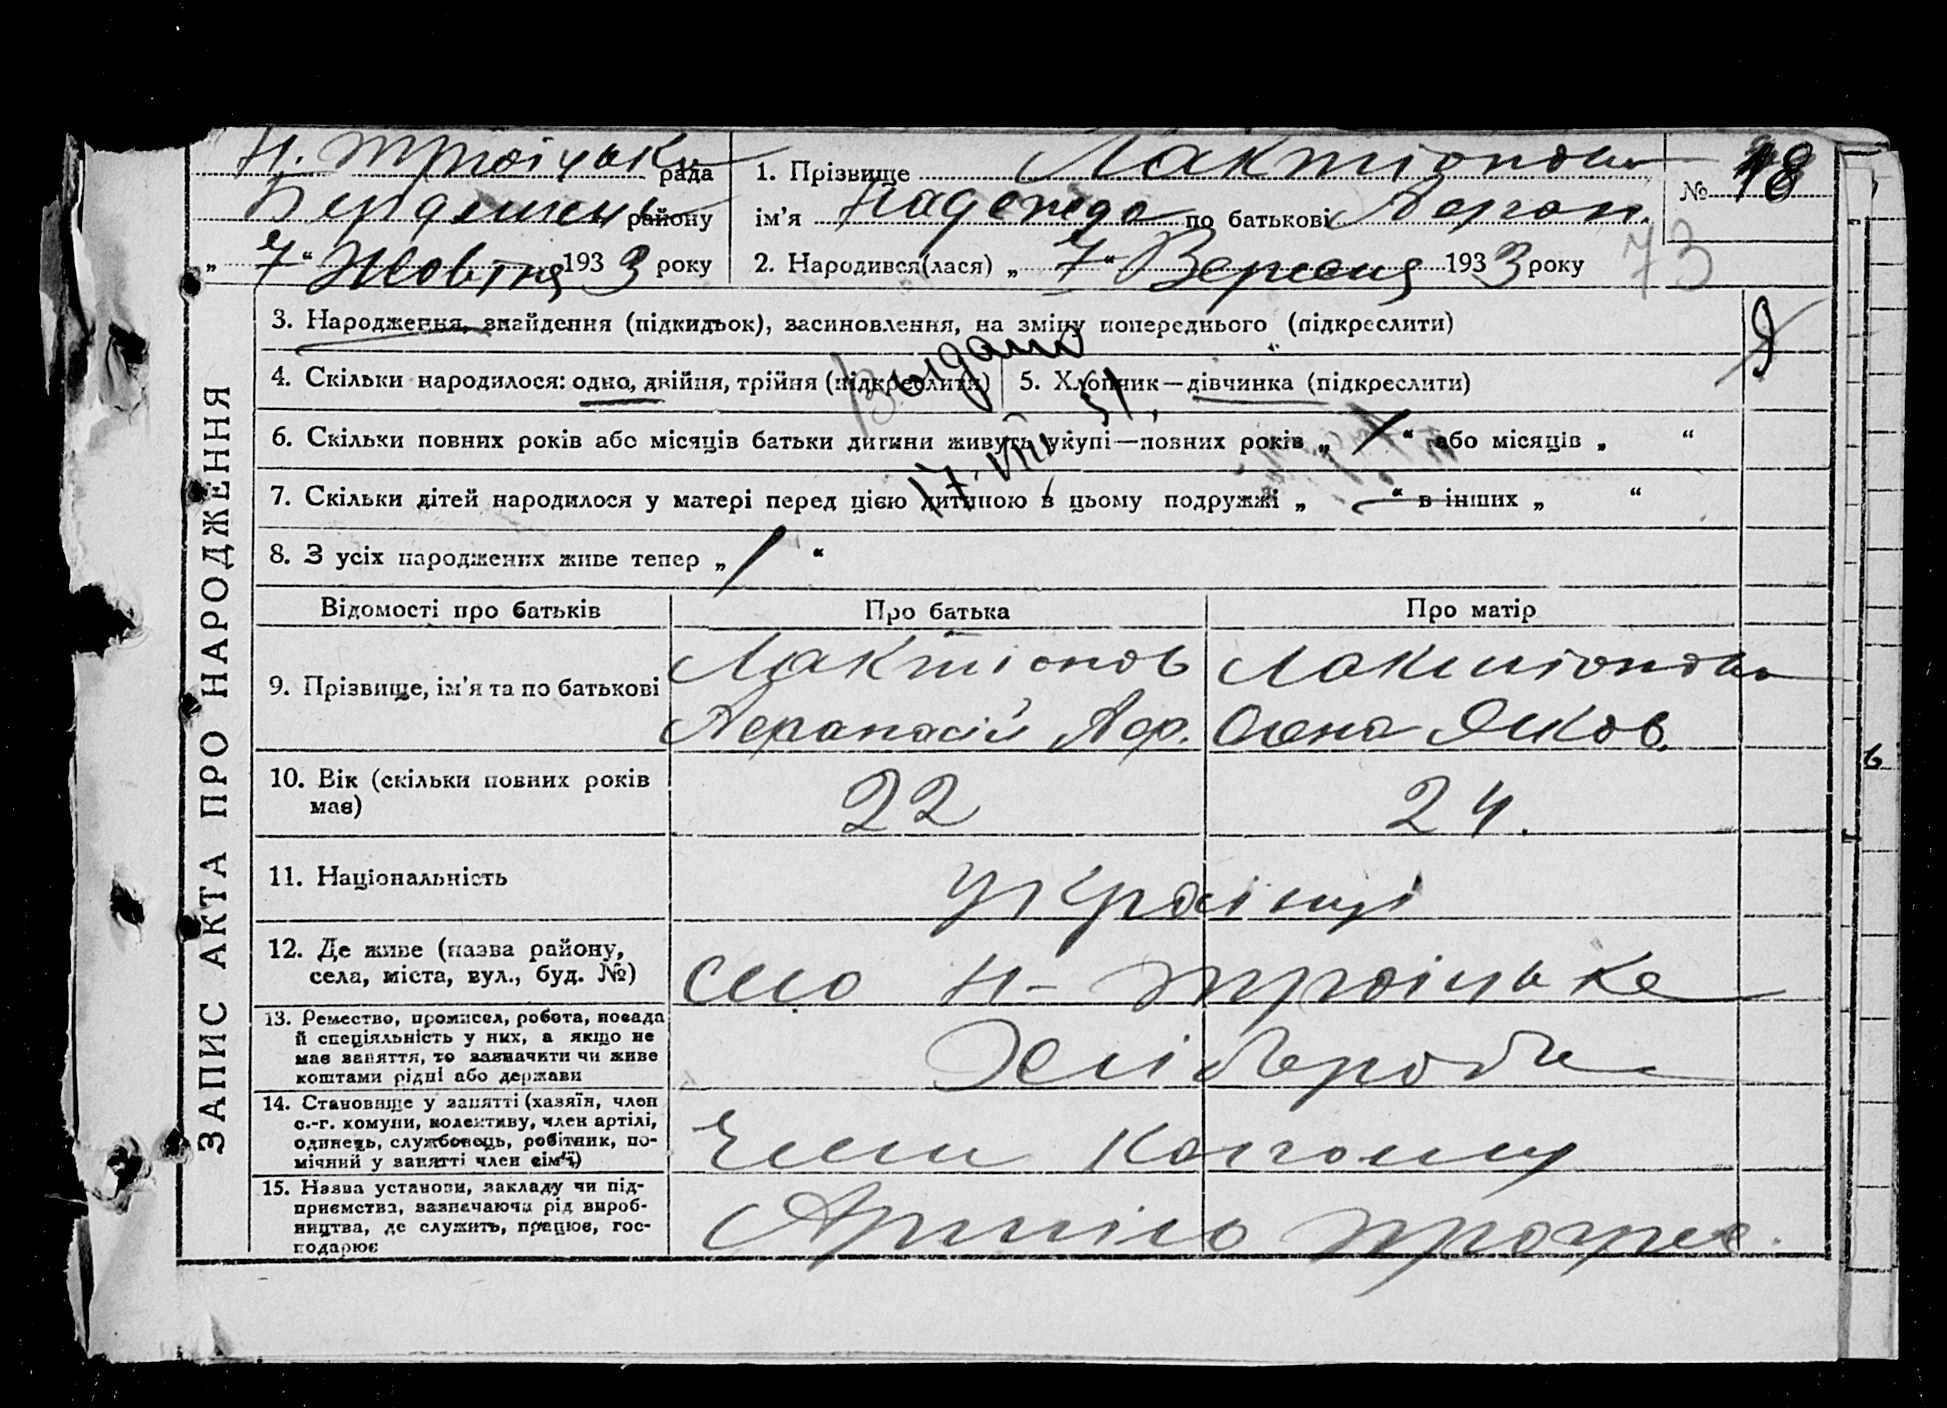 Н. Троіцька рада
Бердянськ району
„ 7 “ Жовтня 1933 року
1. Прізвище Лактіонова
ім’я Надежда по батькові Афан.
2. Народився(лася) „ 7 “ Вересня 1933 року
№ 18
73
3. Народження, знайдення (підкидьок), засиновлення, на зміну попереднього (підкреслити)
4. Скільки народилося: одно, двійня, трійня (підкреслити) 5. Хлопчик—дівчинка (підкреслити)
Выдано
17.VIII 51
6. Скільки повних років або місяців батьки дитини живуть укупі—повних років „ 1 “ або місяців „ “
7. Скільки дітей народилося у матері перед цією дитиною в цьому подружжі „ — “ в інших „ “
8. З усіх народжених живе тепер „ 1 “
ЗАПИС АКТА ПРО НАРОДЖЕННЯ
Відомості про батьків Про батька Про матір
9. Прізвище, ім’я та по батькові
Лактіонов
Афанасій Аф.
Лактіонова
Олена Яков.
10. Вік (скільки повних років
має)
22 24.
11. Національність українці
12. Де живе (назва району,
села, міста, вул., буд. №)
село Н-Троіцьке
13. Ремество, промисел, робота, посада
й спеціяльність у них, а якщо не
має заняття, то зазначити чи живе
коштами рідні або держави
Хлібороби
14. Становище у занятті (хазяїн, член
с.-г. комуни, колективу, член артілі,
одинець, службовець, робітник, по-
мічний у занятті член сім’ї)
Член колгоспу
15. Назва установи, закладу чи під-
приємства, зазначаючи рід вироб-
ництва, де служить, працює, гос-
подарює
Артіль Прогрес.
6